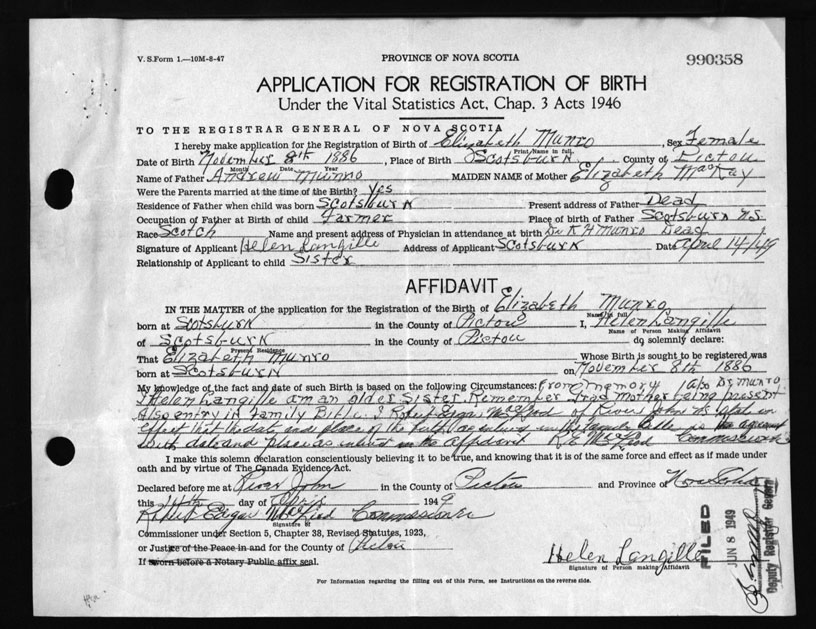 V. S. Form 1.—10M-8-47
PROVINCE OF NOVA SCOTIA
990358
APPLICATION FOR REGISTRATION OF BIRTH
Under the Vital Statistics Act, Chap. 3 Acts 1946
TO THE REGISTRAR GENERAL OF NOVA SCOTIA
I hereby make application for the Registration of Birth of Elizabeth Munro, Sex Female
Print Name in full
Date of Birth November 8th 1886, Place of Birth Scotsburn. County of Pictou
Month Date Year
Name of Father Andrew Munro MAIDEN NAME of Mother Elizabeth MacKay
Were the Parents married at the time of the Birth? Yes
Residence of Father when child was born Scotsburn Present address of Father Dead
Occupation of Father at Birth of child Farmer Place of birth of Father Scotsburn N.S.
Race Scotch Name and present address of Physician in attendance at birth Dr. K H Munro Dead
Signature of Applicant Helen Langille Address of Applicant Scotsburn Date April 14/49
Relationship of Applicant to child Sister
AFFIDAVIT
IN THE MATTER of the application for the Registration of the Birth of Elizabeth Munro
Name in full
born at Scotsburn in the County of Pictou I, Helen Langille
Name of Person Making Affidavit
of Scotsburn in the County of Pictou do solemnly declare:
Present Residence
That Elizabeth Munro Whose Birth is sought to be registered was
born at Scotsburn on November 8th 1886
My knowledge of the fact and date of such Birth is based on the following Circumstances: From memory
I Helen Langille am an older Sister. Remember Dr Munro being present
Also entry in Family Bible. I Robert Edgar McLeod of River John NS
effect that the date and place of the birth
with date and place as in the affidavit R.E. McLeod Commissioner
I make this solemn declaration conscientiously believing it to be true, and knowing that it is of the same force and effect as if made under
oath and by virtue of The Canada Evidence Act.
Declared before me at River John in the County of Pictou and Province of Nova Scotia
this 14th day of April 1949
Robert Edgar McLeod Commissioner
Signature of
Commissioner under Section 5, Chapter 38, Revised Statutes, 1923,
or Justice of the Peace in and for the County of Pictou
If sworn before a Notary Public affix seal.
Helen Langille
Signature of Person making Affidavit
FILED
JUN 8 1949
Deputy Registrar General
For Information regarding the filling out of this Form, see Instructions on the reverse side.